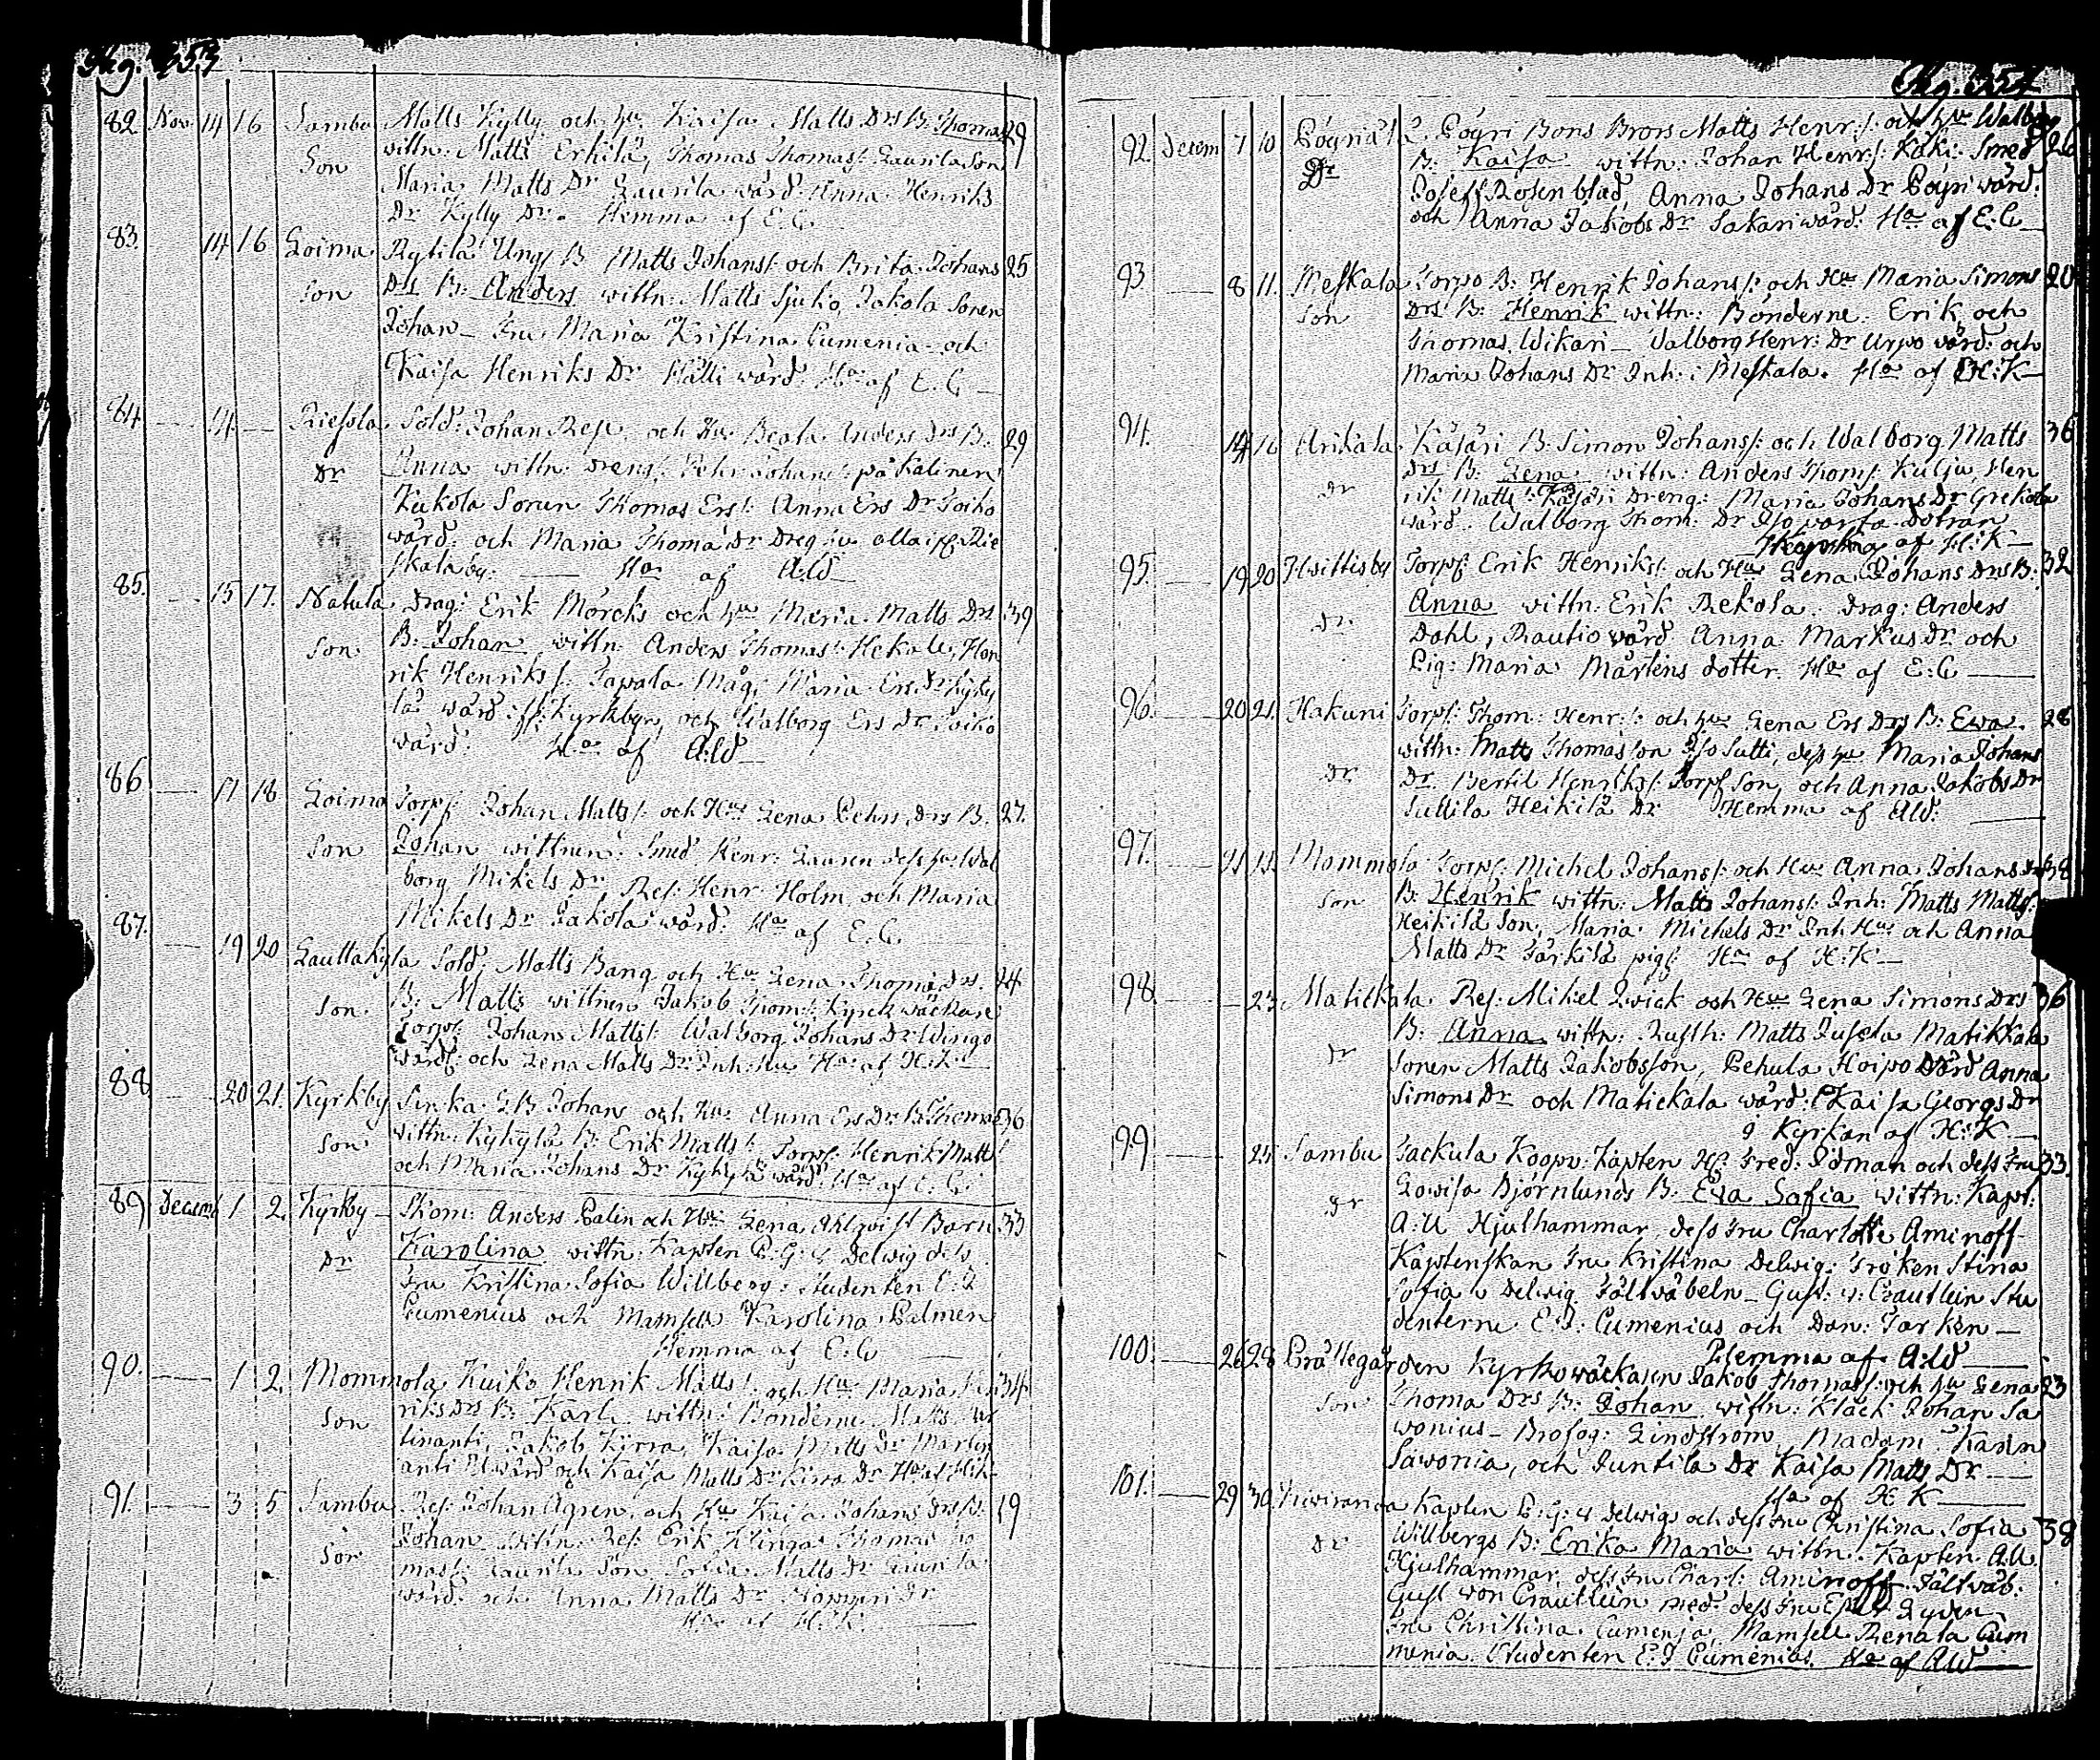 Pag. 353
82 Nov. 14 16 Sambu Matts Kylly och Hu Kaisa Matts Drs B. Thomas 29
Son wittn: Matts Erkilä, Thomas Thomasf: Laurila Son
Maria Matts Dr Laurila wärd: Anna Henriks
Dr Kylly Dr. Hemma af E:C
83. 14 16 Loima Rytilä Ungf B Matts Johansf: och Brita Johans 25
Son Drs B: Anders wittn: Matts Sjuko, Jakola Sonen
Johan Fru Maria Kristina Cumenia och
Kaisa Henriks Dr Hälli wärd: Ha af E.C
84. 14. Riesola Sold: Johan Resf. och Hu Beata Anders Drs B. 29
Dr Anna wittn: Drengf: Pehr Johansf: på Kalinen
Kukola Sonen Thomas Ersf: Anna Ers Dr Toiko
wärd: och Maria Thoma Dr Dreg Hu
skalaby: Ha af A:W
85. 15 17. Natula Drag: Erik Mörcks och Hu Maria Matts Drs 39
Son B: Johan wittn: Anders Thomasf: Hekale, Hen
rik Henriksf: Tapala Måg; Maria Ers Dr Kyky
lä wärd: Kyrkby, och Walborg Ers Dr Toiko
wärd: Ha af A:W
86 17 18 Loima Torpf: Johan Mattsf: och Hu Lena Pehrs Drs B. 27.
Son Johan wittnen: Smed Henr: Lauren dess Hu Wal
borg Mikels Dr, Resf: Henr: Holm och Maria
Mikels Dr Jakola wärd: Ha af E.C
87. 19 20 Lauttakyla Sold: Matts Bang och Hu Lena Thoma Drs. 24
Son B: Matts wittnen Jakob Thomsf: Kyrckwäckare
Torpf: Johan Mattsf: Walborg Johans Dr Wingo
wärdf: och Lena Matts Dr Inh: Hu Ha af H:K
88 20 21. Kyrkby Sinka B Johans och Hu Anna Ers Dr B. Thomas 36
Son wittn: Kykylä B: Erik Mattsf: Torpf: Henrik Mattsf
och Maria Johans Dr Kykylä wärd: Ha af E:C:
89 Decemb 1 2. Kyrkby Skom: Anders Palin och Hu Lena Ahlqwist Barn 33
Dr Karolina wittn: Kapten B:G: v Delwig dess
Fru Kristina Sofia Willberg: Studenten E:J
Cumenius och Mamsell Karolina Palmen
Hemma af E:C
90. 1 2. Mommola Kuiko Henrik Mattsf: och Hu Maria Hen 34
Son riks Drs B: Karl wittn: Bönderne Matts Mar
tinanti, Jakob Kirra, Kaisa Matts Dr Martin
anti wärd och Kaisa Matts Dr Kirra Dr Ha af H:K
91. 3 5 Sambu Resf: Johan Agren och Hu Kaisa Johans Drs B: 19
Son Johan wittn: Resf: Erik Klinga Thomas Tho
masf: Laurila Son Sofia Matts Dr Laurila
wärd: och Anna Matts Dr Dr
Ha af H:K:
Pag. 354
92. Decem 7 10 Pöyriälä. Pöyri Bons Brors Matts Henr:f: och Hu Walborg 26
Dr B: Kaisa wittn: Johan Henrsf: Käki: Smed
Josef Rosenblad, Anna Johans Dr Pöyri wärd:
och Anna Jakobs Dr Sakari wärd: Ha af E:C
93 8 11. Meskala Torpo B: Henrik Johansf: och Hu Maria Simons 20
Son Drs B: Henrik wittn: Bönderne Erik och
Thomas Wikari Walborg Henr: Dr Urpo wärd: och
Maria Johans Dr Inh: i Meskala. Ha af H:K
94. 14 16 Arikala Käsäri B. Simon Johansf: och Walborg Matts 36
Dr Drs B: Lena wittn: Anders Thomsf: Kulju, Hen
rik Mattsf: Käsäri Dreng: Maria Johans Dr Grekola
wärd: Walborg Thom: Dr Iso warfa dotran
af H:K
95. 19 20 Hwittisby Torpf: Erik Henriksf: och Hu Lena Johans Drs B: 32
Dr Anna wittn: Erik Rekola. Drag: Anders
Dahl, Rautio wärd Anna Markus Dr och
Pig: Maria Mårtens dotter. Ha af E:C
96. 20 21. Hakuni Torpf: Thom: Henr:f: och Hu Lena Ers Drs B: Ewa. 28
wittn: Matts Thomasson Iso Sutti, dess Hu Maria Johans
Dr Dr. Bertil Henriksf: Torpf Son, och Anna Jakobs Dr
Suttila Heikilä Dr Hemma af A:W:
97. 21 Mommola Torpf: Michel Johansf: och Hu Anna Johans Dr 38
Son B: Henrik wittn: Matts Johansf: Inh: Matts Mattsf:
Heikilä Son, Maria Michels Dr Inh Hu och Anna
Matts Dr Tärkilä pigf: Ha af H:K
98. 23 Matickala Resf: Mikel Qwick och Hu Lena Simons Drs 36
Dr B: Anna wittn: Rusth: Matts Jussla Matikkala
Sonen Matts Jakobsson, Pehula Hoipo wärd Anna
Simons Dr och Matickala wärd: Kaisa Georgs Dr
i Kyrkan af H:K
99 25 Sambu Sackula Koopv: Kapten H: Fred: Idman och dess Fru 33
Dr Lowisa Björnlunds B: Eva Safia wittn: Kapt:
A:U Hjulhammar, dess Fru Charlotte Aminoff
Kaptenskan Fru Kristina Delwig: Fröken Stina
Sofia v Delwig Fältwäbeln Gust: v: Crautlein Stu
denterne E:J: Cumenius och Dan: Tarken
Hemma af A:W
100. 26 28 Prästegården Kyrkowäckaren Jakob Thomasf: och Hu Lena 23
Son Thoma Drs B: Johan wittn: Klåck Johan Sa
wonius Brofog: Lindström, Madam Karin
Sawonia, och Juntila Dr Kaisa Matts Dr
Ha af H K
101. 29 30 Niwiranda Kapten B:G: v Delwigs och dess Fru Christina Sofia 38
Dr Willbergs B: Erika Maria wittn. Kapten A:U
Hjulhammar, dess Fru Charl: Aminoff. Fältwäb:
Gust von Crautlein med dess Fru Lyden
Fru Christina Cumenia, Mamsell Renata Cum
menia. Studenten E:J Cumenius. Ha af A:W